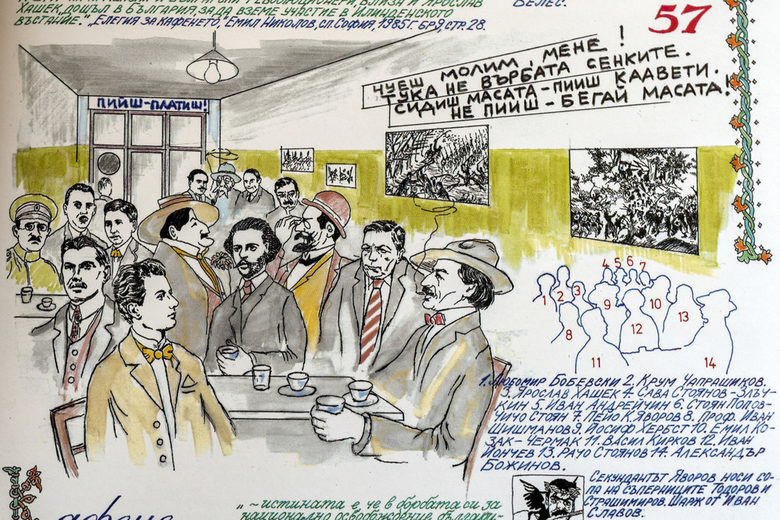 ХАШЕК, ДОШЪЛ В БЪЛГАРИЯ ЗА ДА ВЗЕМЕ УЧАСТИЕ В ИЛИНДЕНСКОТО
ВЪСТАНИЕ." „ЕЛЕГИЯ ЗА КАФЕНЕТО," ЕМИЛ НИКОЛОВ, СП. СОФИЯ, 1985Г. БР 9, СТР. 28.
ВЕЛЕС.
57
ЧУЕШ МОЛИМ, МЕНЕ!
ТУКА НЕ ВЪРБАТА СЕНКИТЕ.
СИДИШ МАСАТА - ПИИШ КААВЕТИ.
НЕ ПИИШ - БЕГАЙ МАСАТА!
ПИЙШ-ПЛАТИШ!
4 5 6 7
1 2 3 9 10
8 12 13
11 14
1. ЛЮБОМИР БОБЕВСКИ 2. КРУМ ЧАПРАШИКОВ.
3. ЯРОСЛАВ ХАШЕК 4. САВА СТОЯНОВ - ЗЛЪЧ-
КИН 5. ИВАН АНДРЕЙЧИН 6. СТОЯН ПОПОВ-
ЧИЧО СТОЯН 7. ДЕЙО К. ЯВАНОВ 8. ПРОФ. ИВАН
ШИШМАНОВ 9. ЙОСИФ ХЕРБСТ 10. ЕМИЛ КО-
ЗАК - ЧЕРМАК 11. ВАСИЛ КИРКОВ 12. ИВАН
ЙОНЧЕВ 13. РАЧО СТОЯНОВ 14. АЛЕКСАНДЪР
БОЖИНОВ.
СЕКУНДАНТЪТ ЯВОРОВ НОСИ СО-
ПА НА СЪПЕРНИЦИТЕ ТОДОРОВ И
СТРАШИМИРОВ. ШАРЖ ОТ ИВАН
СЛАВОВ.
"~ИСТИНАТА Е, ЧЕ В БОРБАТА СИ ЗА